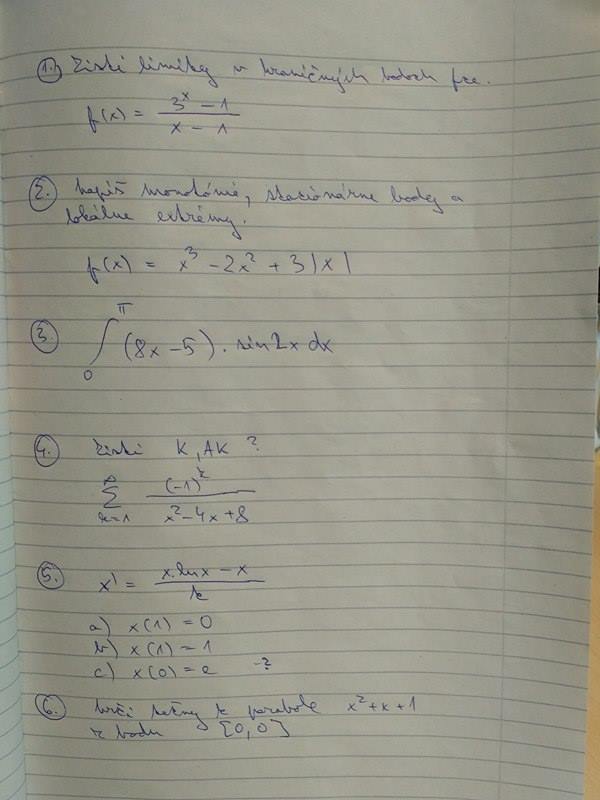 1. Zisti limity v hraničných bodoch fce.
f(x) = (3^x - 1)/(x - 1)
2. napíš monotónie, stacionárne body a
lokálne extrémy.
f(x) = x³ - 2x² + 3|x|
3. ∫₀^π (8x - 5) . sin2x dx
4. Zisti K, AK ?
∑_{k=1}^∞ (-1)^k/(x² - 4x + 8)
5. x' = (x.lnx - x)/t
a) x(1) = 0
b) x(1) = 1
c) x(0) = e -?
6. Urči k parabole x² + x + 1
z bodu [0,0]